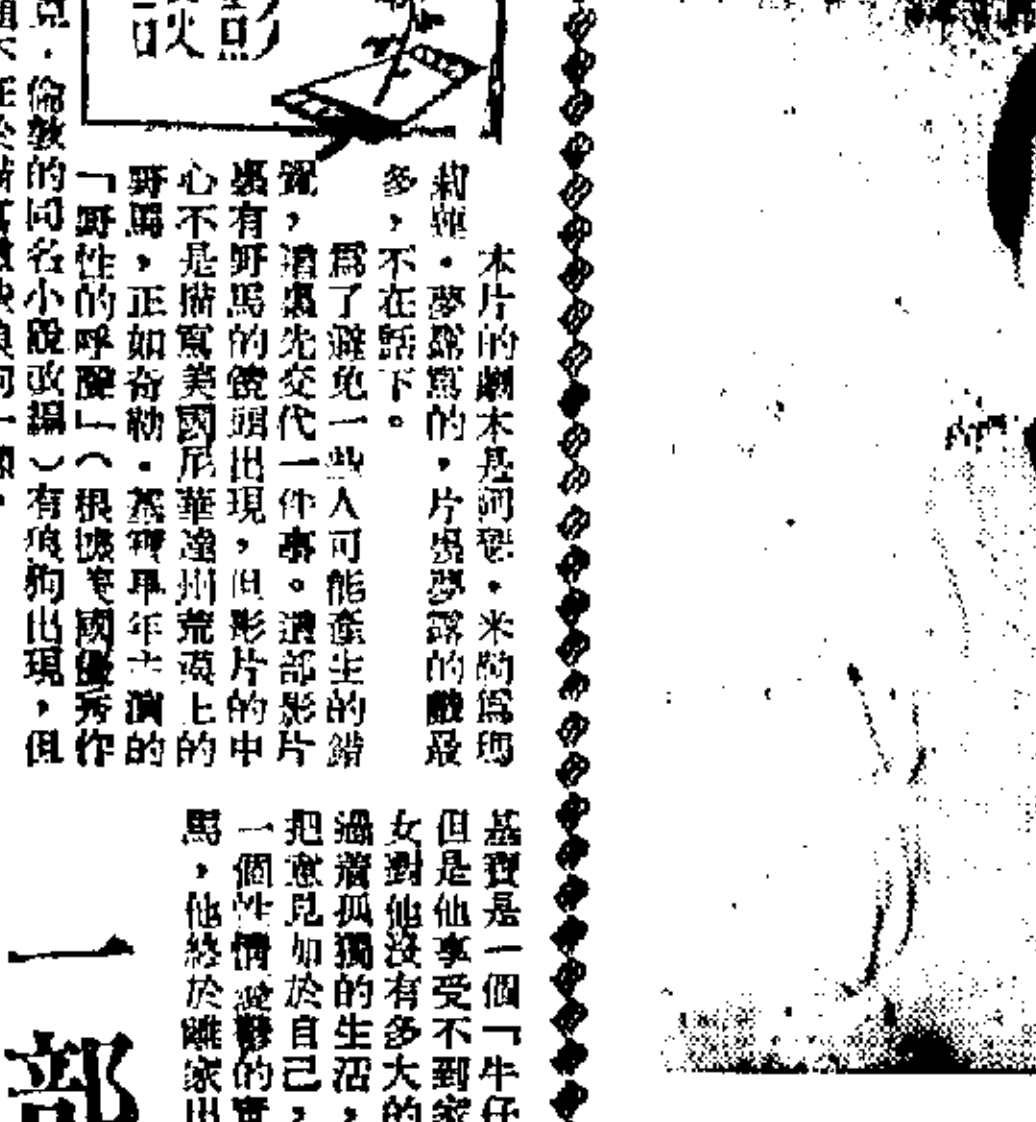 影談
本片的劇本是阿瑟・米勒爲瑪
莉蓮・夢露寫的，片裏夢露的戲最
多，不在話下。
爲了避免一些人可能產生的錯
覺，這裏先交代一件事。這部影片
裏有野馬的鏡頭出現，但影片的中
心不是描寫美國尼華達州荒漠上的
野馬，正如奇勒・基寶早年主演的
「野性的呼聲」（根據美國優秀作
倫敦的同名小說改編）有狼狗出現，但
基寶是一個「牛仔
但是他享受不到家
女對他沒有多大的
過着孤獨的生活，
把意見加於自己，
一個性情憂鬱的
馬，他終於離家出
一部